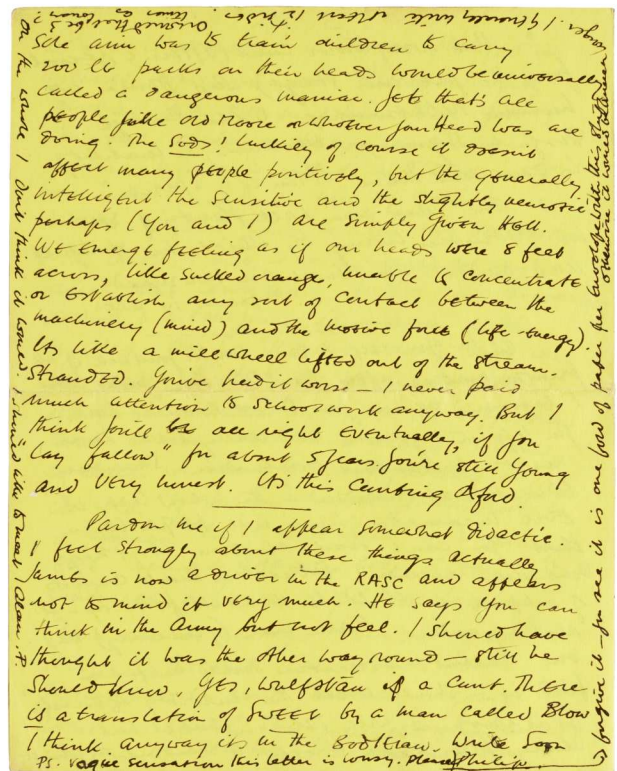 anger. I generally write letters
sole aim was to train children to carry
200 lb packs on their heads would be universally
called a dangerous maniac. Yet that's all
people like Old Moore or whoever your Head was are
doing. The Sods! Luckily of course it doesn't
affect many people positively, but the generally
intelligent the sensitive and the slightly neurotic
perhaps (you and I) are simply given Hell.
We emerge feeling as if our heads were 8 feet
across, like sucked orange, unable to concentrate
or establish any sort of contact between the
machinery (mind) and the motive force (life-energy).
Its like a mill wheel lifted out of the stream.
Stranded. You've had it worse – I never paid
much attention to school work anyway. But I
think you'll be all right eventually, if you
lay fallow" for about 5 years. You're still young
and very honest. It's this cunting Oxford.
Pardon me if I appear somewhat didactic.
I feel strongly about these things actually
James is now a driver in the RASC and appears
not to mind it very much. He says you can
think in the Army but not feel. I should have
thought it was the other way round – still he
should know. Yes, Wulfstan is a cunt. There
is a translation of Sweet by a man called Blow
I think. Anyway its in the Bodleian. Write Soon
PS. Vague sensation this letter is lousy. Please Philip.
forgive it – you see it is one ford of paper per envelope with this
otherwise it would be
On the whole I don't think it would. I should like to meet Alan P.